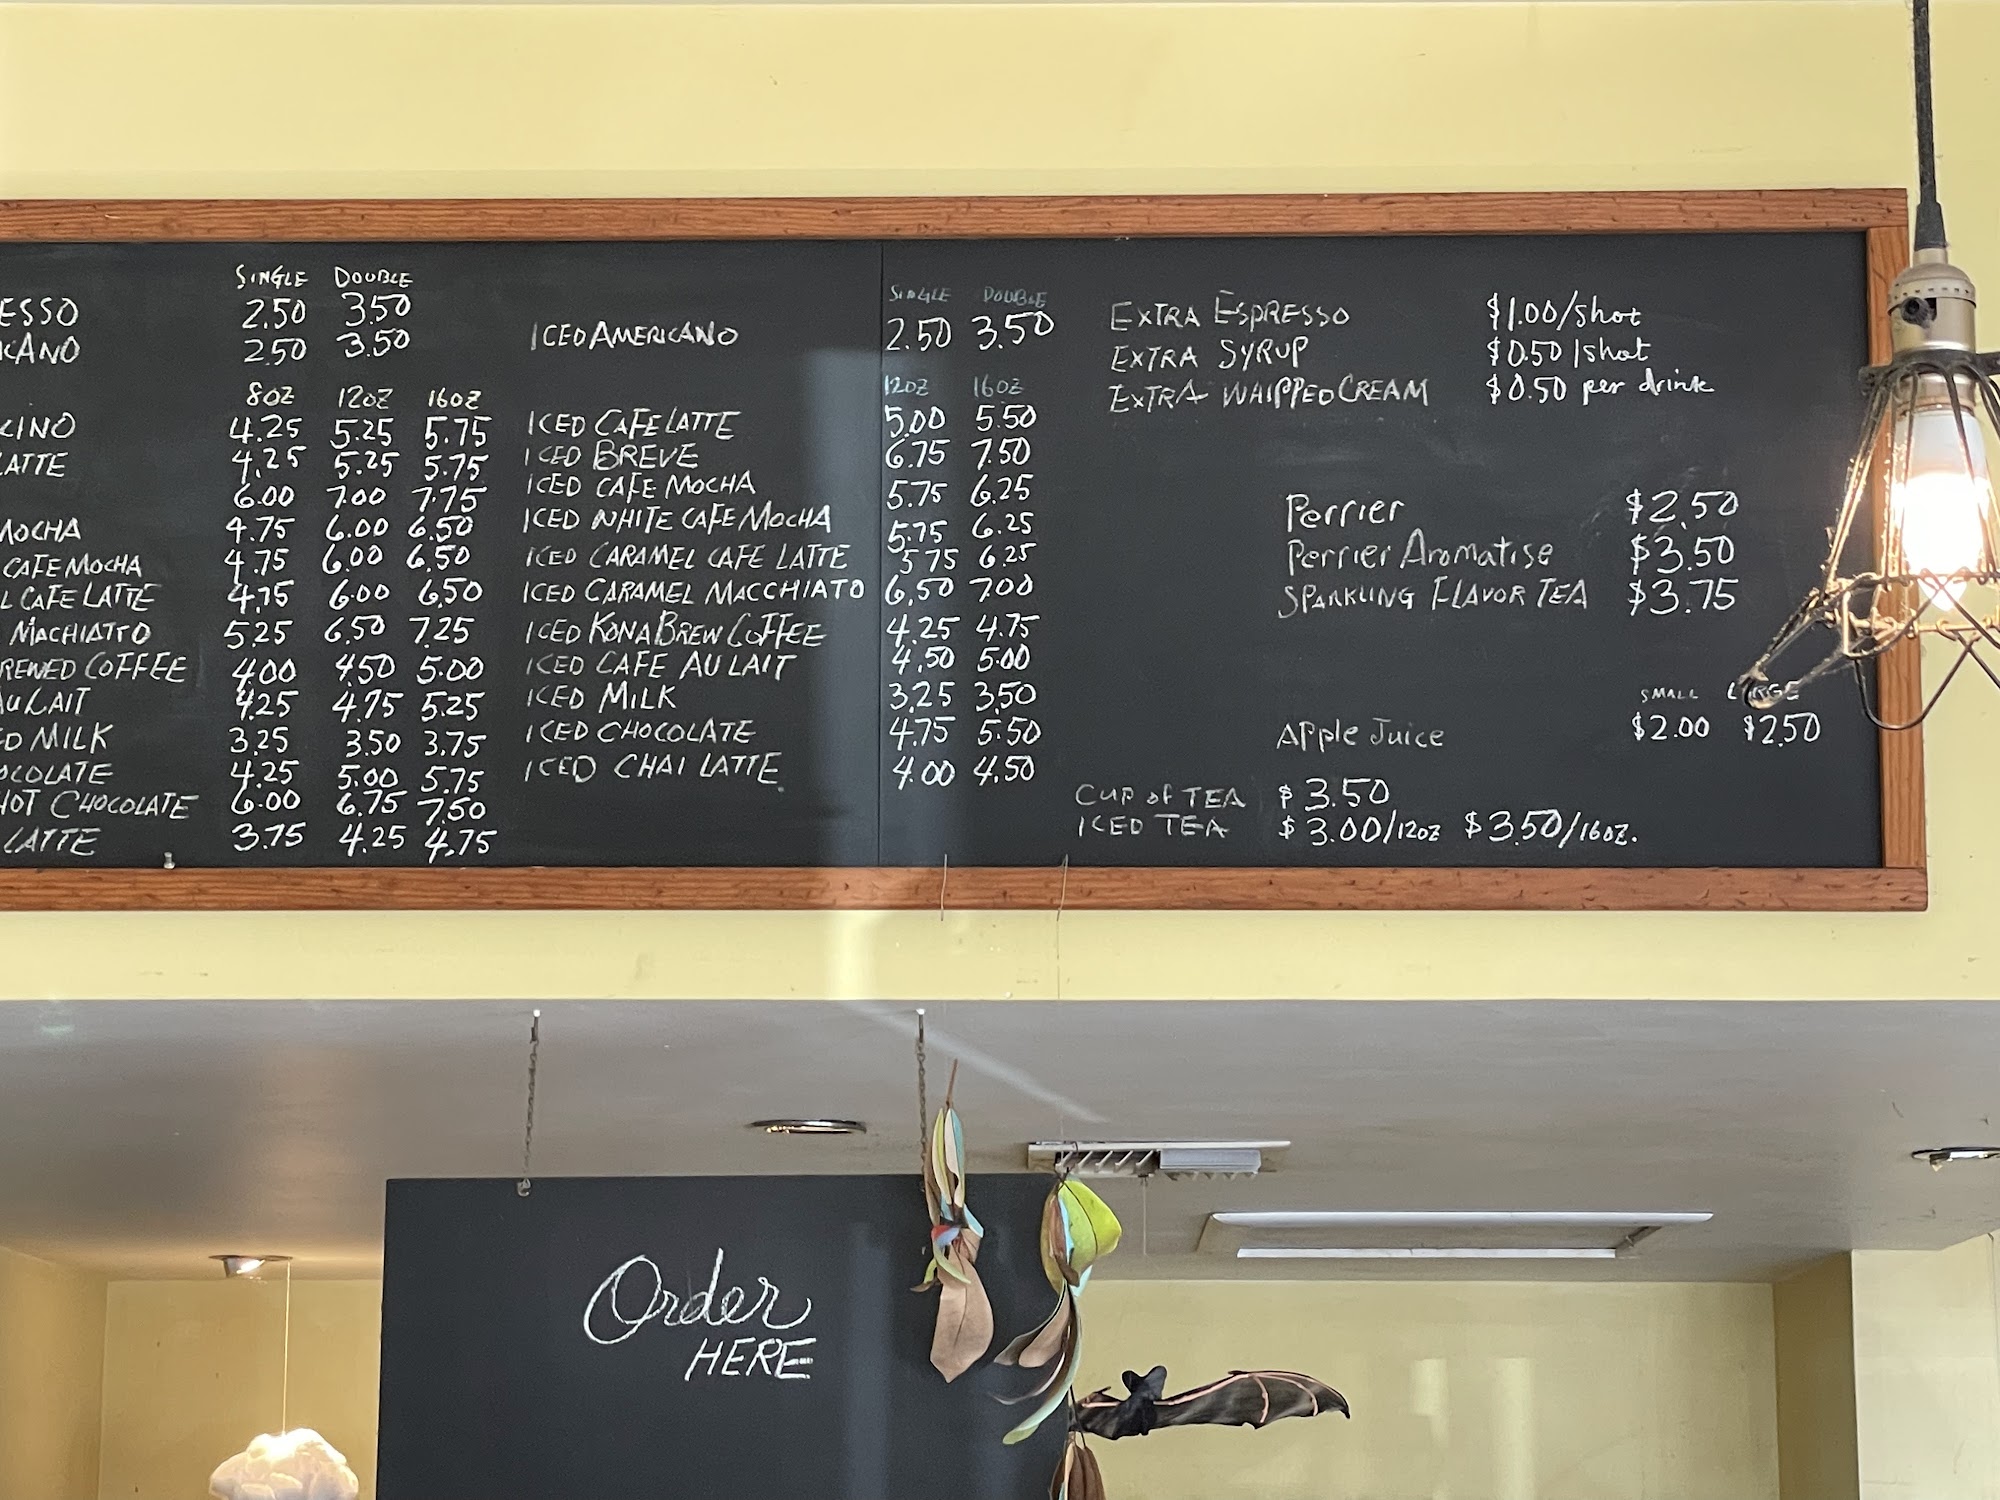 SINGLE DOUBLE
ESSO 2.50 3.50
CANO 2.50 3.50
8OZ 12OZ 16OZ
CINO 4.25 5.25 5.75
LATTE 4.25 5.25 5.75
6.00 7.00 7.75
MOCHA 4.75 6.00 6.50
CAFE MOCHA 4.75 6.00 6.50
L CAFE LATTE 4.75 6.00 6.50
MACHIATTO 5.25 6.50 7.25
REWED COFFEE 4.00 4.50 5.00
AU LAIT 4.25 4.75 5.25
D MILK 3.25 3.50 3.75
OCOLATE 4.25 5.00 5.75
HOT CHOCOLATE 6.00 6.75 7.50
LATTE 3.75 4.25 4.75
SINGLE DOUBLE
ICED AMERICANO 2.50 3.50
12OZ 16OZ
ICED CAFE LATTE 5.00 5.50
ICED BREVE 6.75 7.50
ICED CAFE MOCHA 5.75 6.25
ICED WHITE CAFE MOCHA 5.75 6.25
ICED CARAMEL CAFE LATTE 5.75 6.25
ICED CARAMEL MACCHIATO 6.50 7.00
ICED KONA BREW COFFEE 4.25 4.75
ICED CAFE AU LAIT 4.50 5.00
ICED MILK 3.25 3.50
ICED CHOCOLATE 4.75 5.50
ICED CHAI LATTE 4.00 4.50
EXTRA ESPRESSO $1.00/shot
EXTRA SYRUP $0.50/shot
EXTRA WHIPPED CREAM $0.50 per drink
Perrier $2.50
Perrier Aromatise $3.50
SPARKLING FLAVOR TEA $3.75
SMALL LARGE
APPle Juice $2.00 $2.50
CUP OF TEA $3.50
ICED TEA $3.00/12OZ $3.50/16OZ.
Order
HERE